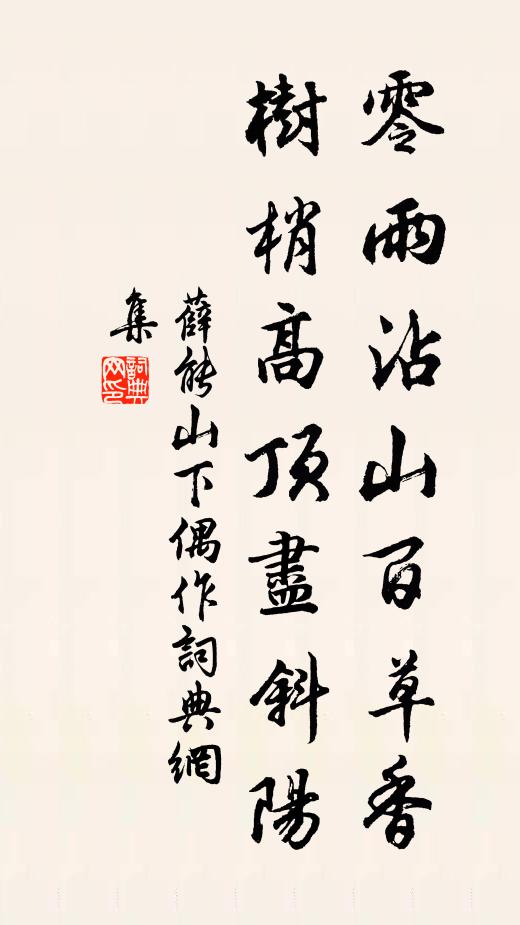 零雨沾山百草香
樹梢高頂盡斜陽
薛能山下偶作詞典網
集
詞典网印